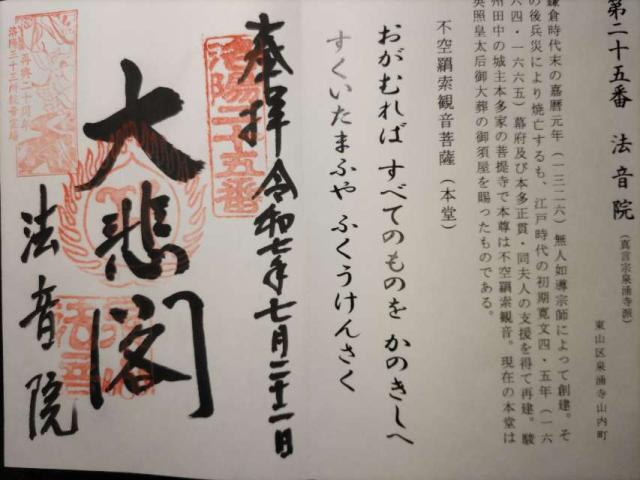 第二十五番 法音院
（真言宗泉涌寺派）
東山区泉涌寺山内町
鎌倉時代末の嘉暦元年（一三二六）無人如導宗師によって創建。そ
の後兵災により焼亡するも、江戸時代の初期寛文四・五年（一六
六四・一六六五）幕府及び本多正貫・同夫人の支援を得て再建。駿
州田中の城主本多家の菩提寺で本尊は不空羂索観音。現在の本堂は
英照皇太后御大葬の御須屋を賜ったものである。
不空羂索観音菩薩（本堂）
おがむれば すべてのものを かのきしへ
すくいたまふや ふくうけんさく
奉拝 令和七年七月二十二日
洛陽二十五番
大悲閣
法音院
再興二十周年
洛陽三十三所観音霊場